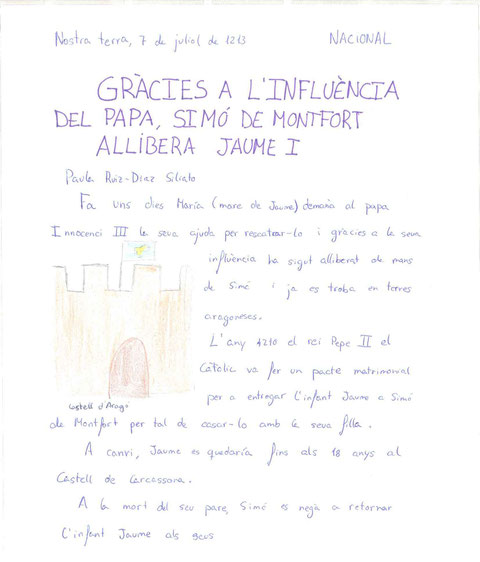 Nostra terra, 7 de juliol de 1213
NACIONAL
GRÀCIES A L'INFLUÈNCIA
DEL PAPA, SIMÓ DE MONTFORT
ALLIBERA JAUME I
Paula Ruiz-Díaz
Fa uns dies Maria (mare de Jaume) demanà al papa
Innocenci III la seva ajuda per rescatrar-lo i gràcies a la seua
influència ha sigut alliberat de mans
de Simó i ja es troba en terres
aragoneses.
L'any 1210 el rei Pepe II el
Catòlic va fer un pacte matrimonial
per a entregar l'infant Jaume a Simó
Castell d'Aragó
de Montfort per tal de casar-lo amb la seva filla.
A canvi, Jaume es quedaria fins als 18 anys al
Castell de Carcassona.
A la mort del seu pare, Simó es negà a retornar
l'infant Jaume als seus